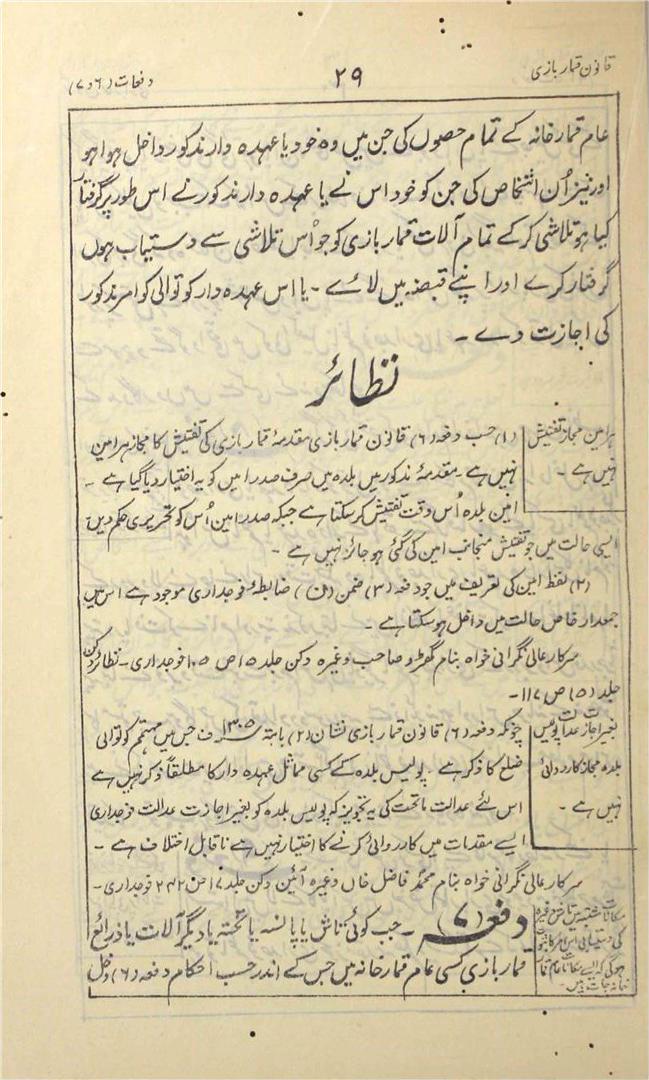 قانون قمار بازی
۲۹
دفعات (۶ و ۷)
عام قمار خانہ کے تمام حصوں کی جن میں وہ خود یا عہدہ دار مذکور داخل ہوا ہو
اور نیز اُن اشخاص کی جن کو خود اس نے یا عہدہ دار مذکور نے اس طور پر گرفتار
کیا ہو تلاشی کر کے تمام آلات قمار بازی کو جو اُس تلاشی سے دستیاب ہوں
گرفتار کرے اور اپنے قبضہ میں لائے ۔ یا اس عہدہ دار کوتوالی کو امر مذکور
کی اجازت دے ۔
نظائر
ہر امین مجاز تفتیش
نہیں ہے ۔
(۱) حسب دفعہ (۶) قانون قمار بازی مقدمۂ قمار بازی کی تفتیش کا مجاز ہر امین
نہیں ہے ۔ مقدمۂ مذکور میں بلدہ میں صرف صدر امین کو یہ اختیار دیا گیا ہے ۔
امین بلدہ اُس وقت تفتیش کر سکتا ہے جبکہ صدر امین اُس کو تحریری حکم دیں
ایسی حالت میں جو تفتیش منجانب امین کی گئی ہو جائز نہیں ہے ۔
(۲) لفظ امین کی تعریف میں جو دفعہ (۳) ضمن (ف) ضابطۂ فوجداری موجود ہے اس میں
جمعدار خاص حالت میں داخل ہو سکتا ہے ۔
سرکار عالی نگرانی خواہ بنام گھڑو صاحب وغیرہ دکن جلد ۱۵ ص ۱۰۵ فوجداری ۔ نظائر دکن
جلد (۵) ص ۱۱۷ ۔
بغیر اجازت عدالت پولیس
بلدہ مجاز کارروائی
نہیں ہے ۔
چونکہ دفعہ (۶) قانون قمار بازی نشان (۲) بابتہ ۱۳۰۵ ف جس میں مہتمم کوتوالی
ضلع کا ذکر ہے ۔ پولیس بلدہ کے کسی مماثل عہدہ دار کا مطلقاً ذکر نہیں ہے
اس لئے عدالت ماتحت کی یہ تجویز کہ پولیس بلدہ کو بغیر اجازت عدالت فوجداری
ایسے مقدمات میں کارروائی کرنے کا اختیار نہیں ہے ناقابل اختلاف ہے ۔
سرکار عالی نگرانی خواہ بنام محمد فاضل خاں وغیرہ آئین دکن جلد ۱۷ ص ۲۴۲ فوجداری ۔
مکانات مشتبہ میں تاش وغیرہ
کی دستیابی اس امر کا ثبوت
ہوگی کہ ایسے مکانات عام قمار
خانہ جات ہیں ۔
دفعہ (۷) ۔ جب کوئی تاش یا پانسہ یا تختہ یا دیگر آلات یا ذرائع
قمار بازی کسی عام قمار خانہ میں جس کے اندر حسب احکام دفعہ (۶) دخل